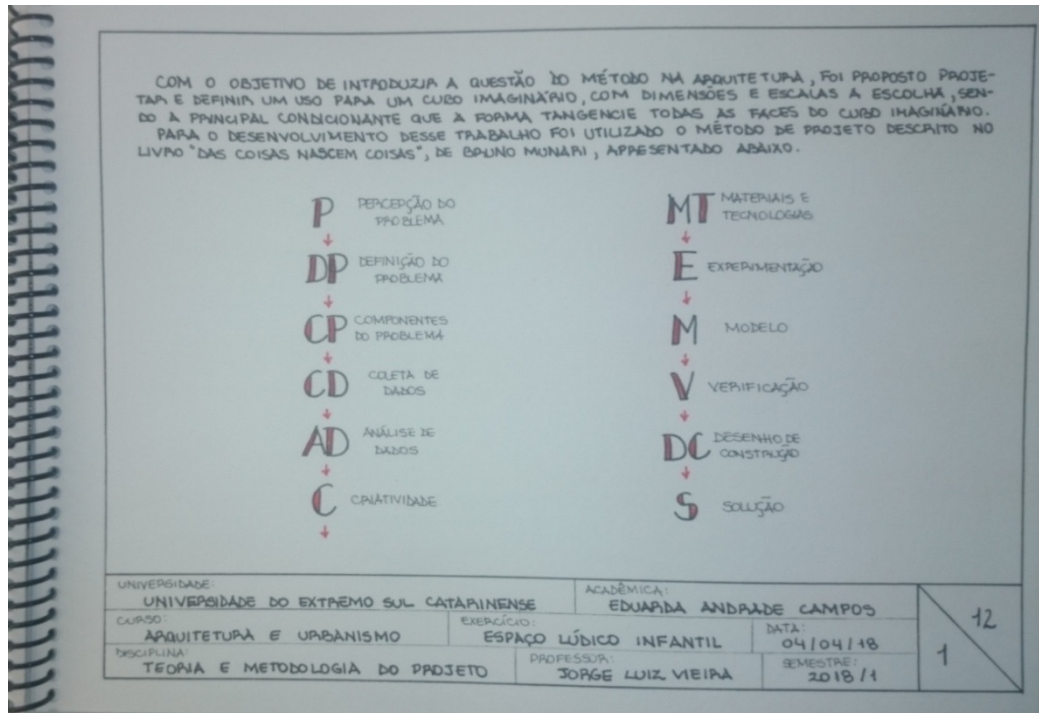 COM O OBJETIVO DE INTRODUZIR A QUESTÃO DO MÉTODO NA ARQUITETURA, FOI PROPOSTO PROJE-
TAR E DEFINIR UM USO PARA UM CUBO IMAGINÁRIO, COM DIMENSÕES E ESCALAS A ESCOLHA, SEN-
DO A PRINCIPAL CONDICIONANTE QUE A FORMA TANGENCIE TODAS AS FACES DO CUBO IMAGINÁRIO.
PARA O DESENVOLVIMENTO DESSE TRABALHO FOI UTILIZADO O MÉTODO DE PROJETO DESCRITO NO
LIVRO "DAS COISAS NASCEM COISAS", DE BRUNO MUNARI, APRESENTADO ABAIXO.
P PERCEPÇÃO DO
PROBLEMA
DP DEFINIÇÃO DO
PROBLEMA
CP COMPONENTES
DO PROBLEMA
CD COLETA DE
DADOS
AD ANÁLISE DE
DADOS
C CRIATIVIDADE
MT MATERIAIS E
TECNOLOGIAS
E EXPERIMENTAÇÃO
M MODELO
V VERIFICAÇÃO
DC DESENHO DE
CONSTRUÇÃO
S SOLUÇÃO
UNIVERSIDADE:
UNIVERSIDADE DO EXTREMO SUL CATARINENSE
ACADÊMICA:
EDUARDA ANDRADE CAMPOS
CURSO:
ARQUITETURA E URBANISMO
EXERCÍCIO:
ESPAÇO LÚDICO INFANTIL
DATA:
04/04/18
DISCIPLINA:
TEORIA E METODOLOGIA DO PROJETO
PROFESSOR:
JORGE LUIZ VIEIRA
SEMESTRE:
2018/1
12
1